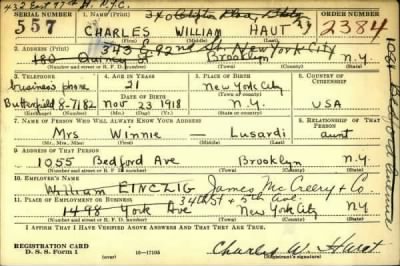 432 East 77th St. N.Y.C.
SERIAL NUMBER 1. NAME (Print) ORDER NUMBER
557 CHARLES WILLIAM HAUT 2384
(First) (Middle) (Last)
343 E 92nd St. New York City
2. ADDRESS (Print)
180 Quincy St Brooklyn N.Y.
(Number and street or R. F. D. number) (Town) (County) (State)
3. TELEPHONE 4. AGE IN YEARS 5. PLACE OF BIRTH 6. COUNTRY OF CITIZENSHIP
business phone 21 New York City
DATE OF BIRTH
Butterfield 8-7182 Nov 23 1918 N.Y. USA
(Exchange) (Number) (Mo.) (Day) (Yr.) (State or country)
7. NAME OF PERSON WHO WILL ALWAYS KNOW YOUR ADDRESS 8. RELATIONSHIP OF THAT PERSON
Mrs Winnie — Lusardi aunt
(Mr., Mrs., Miss) (First) (Middle) (Last)
9. ADDRESS OF THAT PERSON
1055 Bedford Ave Brooklyn N.Y.
(Number and street or R. F. D. number) (Town) (County) (State)
10. EMPLOYER'S NAME
William James McCreery + Co
34th St + 5th Ave
11. PLACE OF EMPLOYMENT OR BUSINESS
1498 York Ave New York City NY
(Number and street or R. F. D. number) (Town) (County) (State)
I AFFIRM THAT I HAVE VERIFIED ABOVE ANSWERS AND THAT THEY ARE TRUE.
REGISTRATION CARD
D. S. S. Form 1 16—17105 Charles W. Haut
(Registrant's signature)